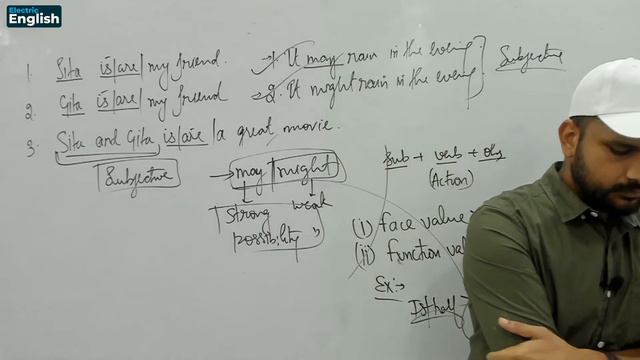 Electric
English
1. Sita is/are/ my friend.
2. Gita is/are/ my friend
3. Sita and Gita is/are/ a great movie.
Subjective
1. It may rain in the evening
2. It might rain in the evening
Subjective
→ may/might
strong
possibility
weak
Sub + verb + obj
(Action)
(i) face value
(ii) function val
Ex:→